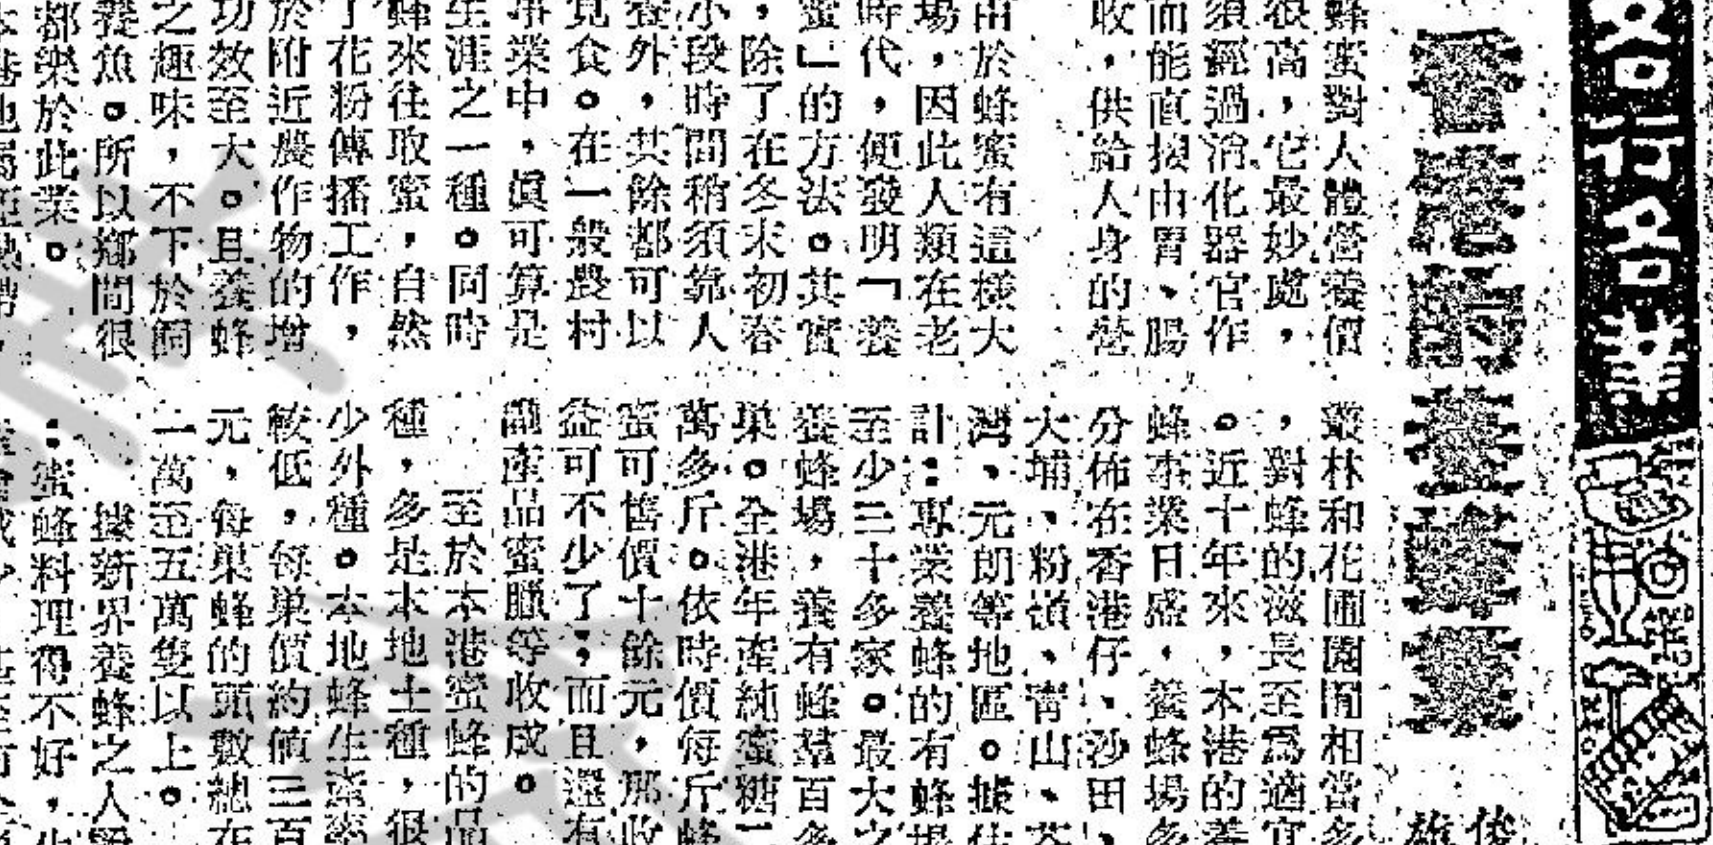 各行各業
香港的養蜂業
蜂蜜對人體營養價
很高，它最妙處，
須經過消化器官作
而能直接由胃、腸
收，供給人身的營
由於蜂蜜有這樣大
場，因此人類在老
時代，便發明「養
蜜」的方法。其實
，除了在冬末初春
小段時間稍須靠人
養外，其餘都可以
覓食。在一般農村
事業中，眞可算是
生涯之一種。同時
蜂來往取蜜，自然
了花粉傳播工作，
於附近農作物的增
功效至大。且養蜂
之趣味，不下於飼
養魚。所以鄉間很
都樂於此業。
本港地屬亞熱帶，
叢林和花圃園囿相當多
，對蜂的滋長至爲適宜
。近十年來，本港的養
蜂事業日盛，養蜂場多
分佈在香港仔、沙田、
大埔、粉嶺、靑山、荃
灣、元朗等地區。據估
計：專業養蜂的有蜂場
至少三十多家。最大之
養蜂場，養有蜂羣百多
巢。全港年產純蜜糖二
萬多斤。依時價每斤蜂
蜜可售價十餘元，那收
益可不少了，而且還有
副產品蜜臘等收成。
至於本港蜜蜂的品
種，多是本地土種，很
少外種。本地蜂生產率
較低，每巢價約値三百
元，每巢蜂的頭數總在
一萬至五萬隻以上。
據新界養蜂之人謂
：蜜蜂料理得不好，